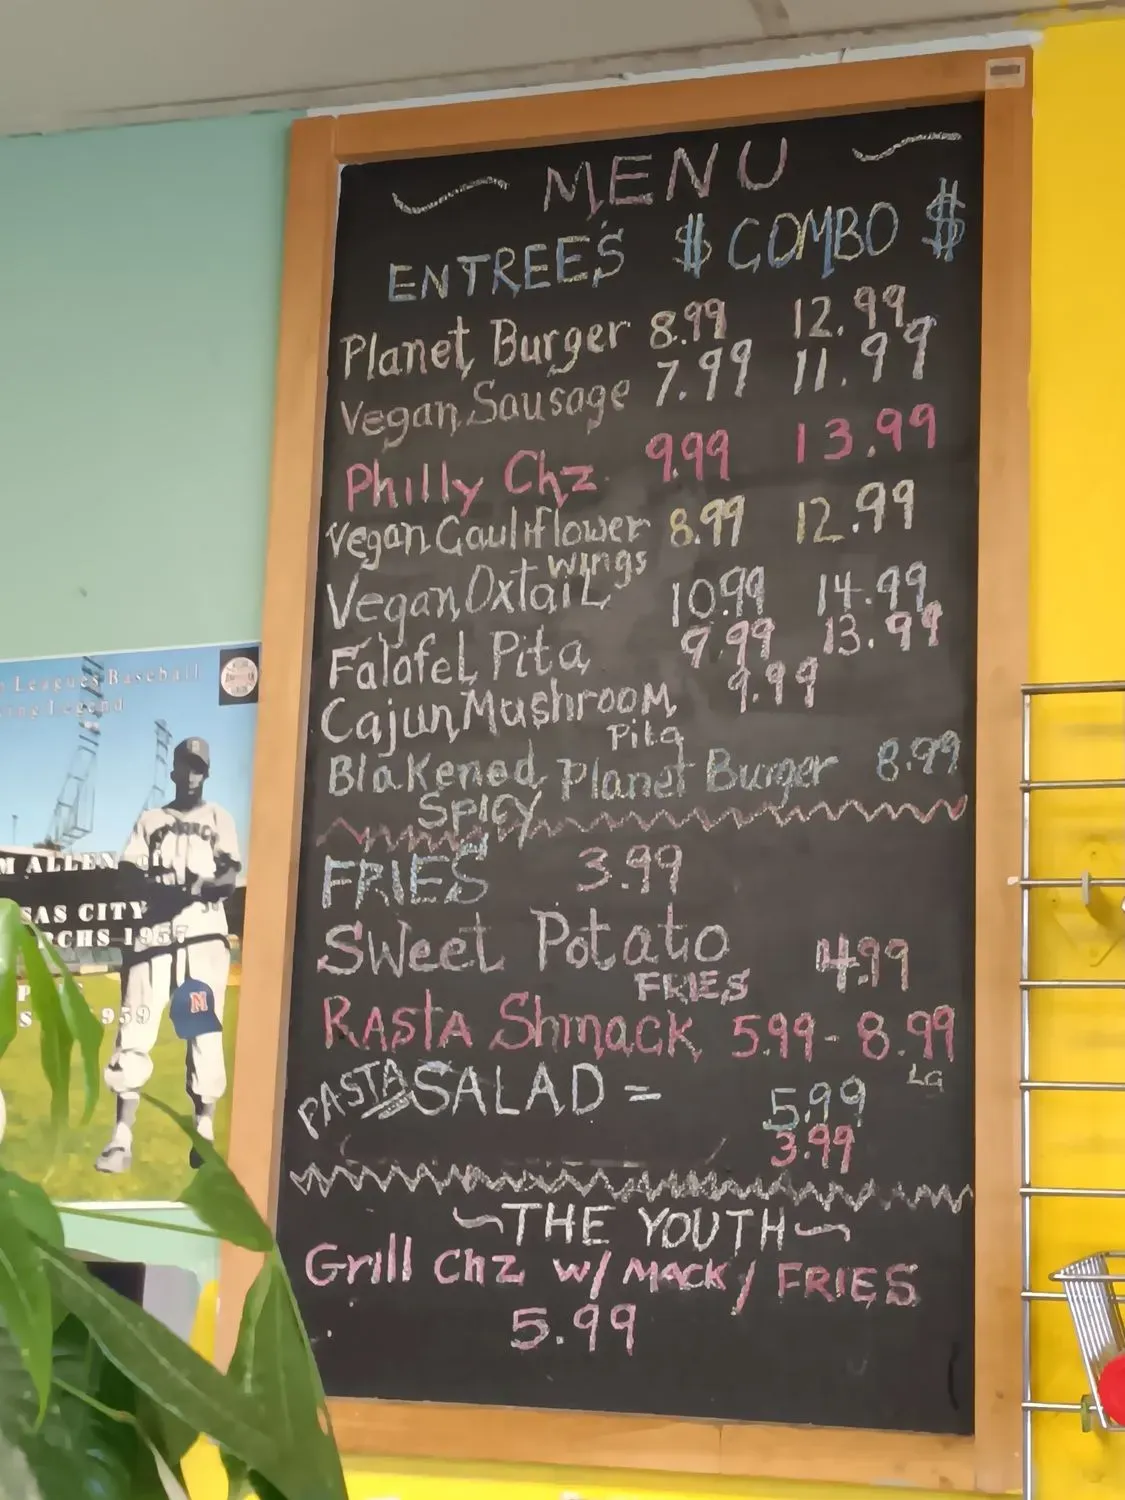 MENU
ENTREES $ COMBO $
Planet Burger 8.99 12.99
Vegan Sausage 7.99 11.99
Philly Chz 9.99 13.99
Vegan Cauliflower 8.99 12.99
wings
Vegan Oxtail 10.99 14.99
Falafel Pita 9.99 13.99
Cajun Mushroom 9.99
Pita
Blakened Planet Burger 8.99
SPICY
FRIES 3.99
Sweet Potato 4.99
FRIES
RASTA Shmack 5.99 - 8.99
LG
PASTA SALAD = 5.99
3.99
~THE YOUTH~
Grill Chz w/ MACK / FRIES
5.99
Leagues Baseball
Legend
M ALLEN
SAS CITY
RCHS 1957
959
M